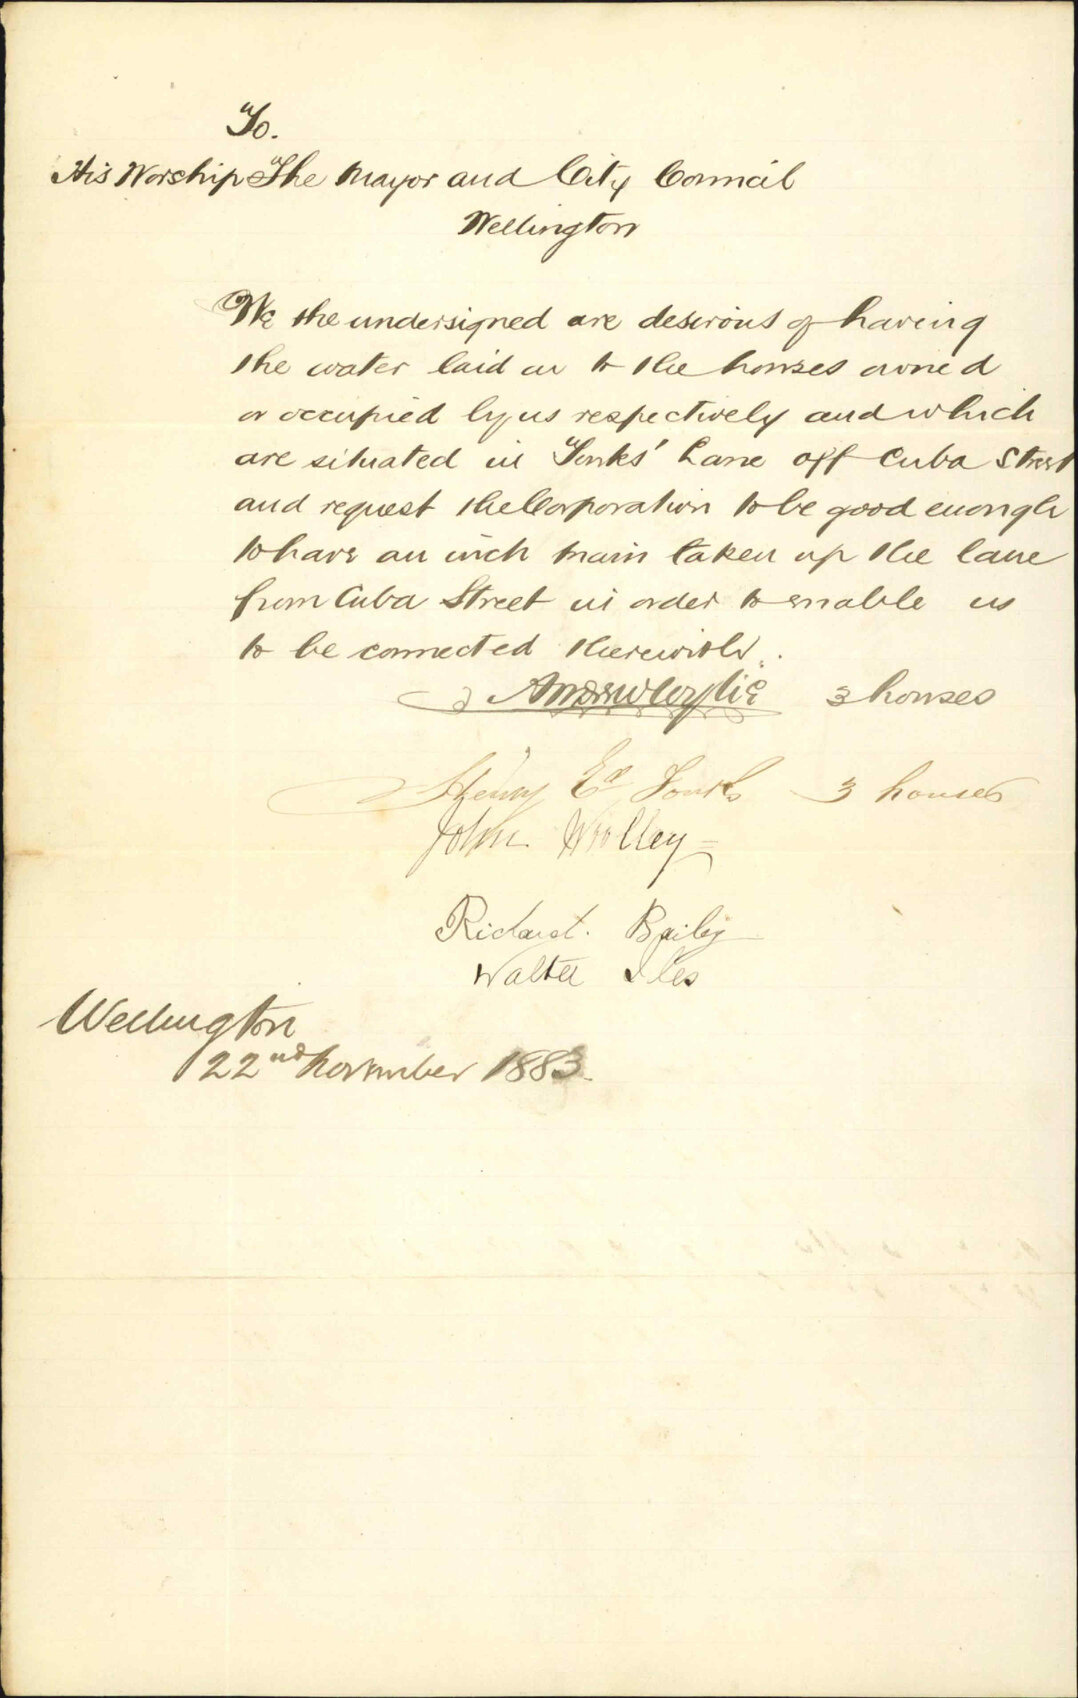 To.
His Worship The Mayor and City Council
Wellington
We the undersigned are desirous of having
the water laid on to the houses owned
or occupied by us respectively and which
are situated in Tonks' Lane off Cuba Street
and request the Corporation to be good enough
to have an inch main taken up the lane
from Cuba Street in order to enable us
to be connected therewith.
Andrew Wylie 3 houses
Henry Tonks 3 houses
John Woolley
Richard. Baily
Walter Iles
Wellington
22nd November 1883.